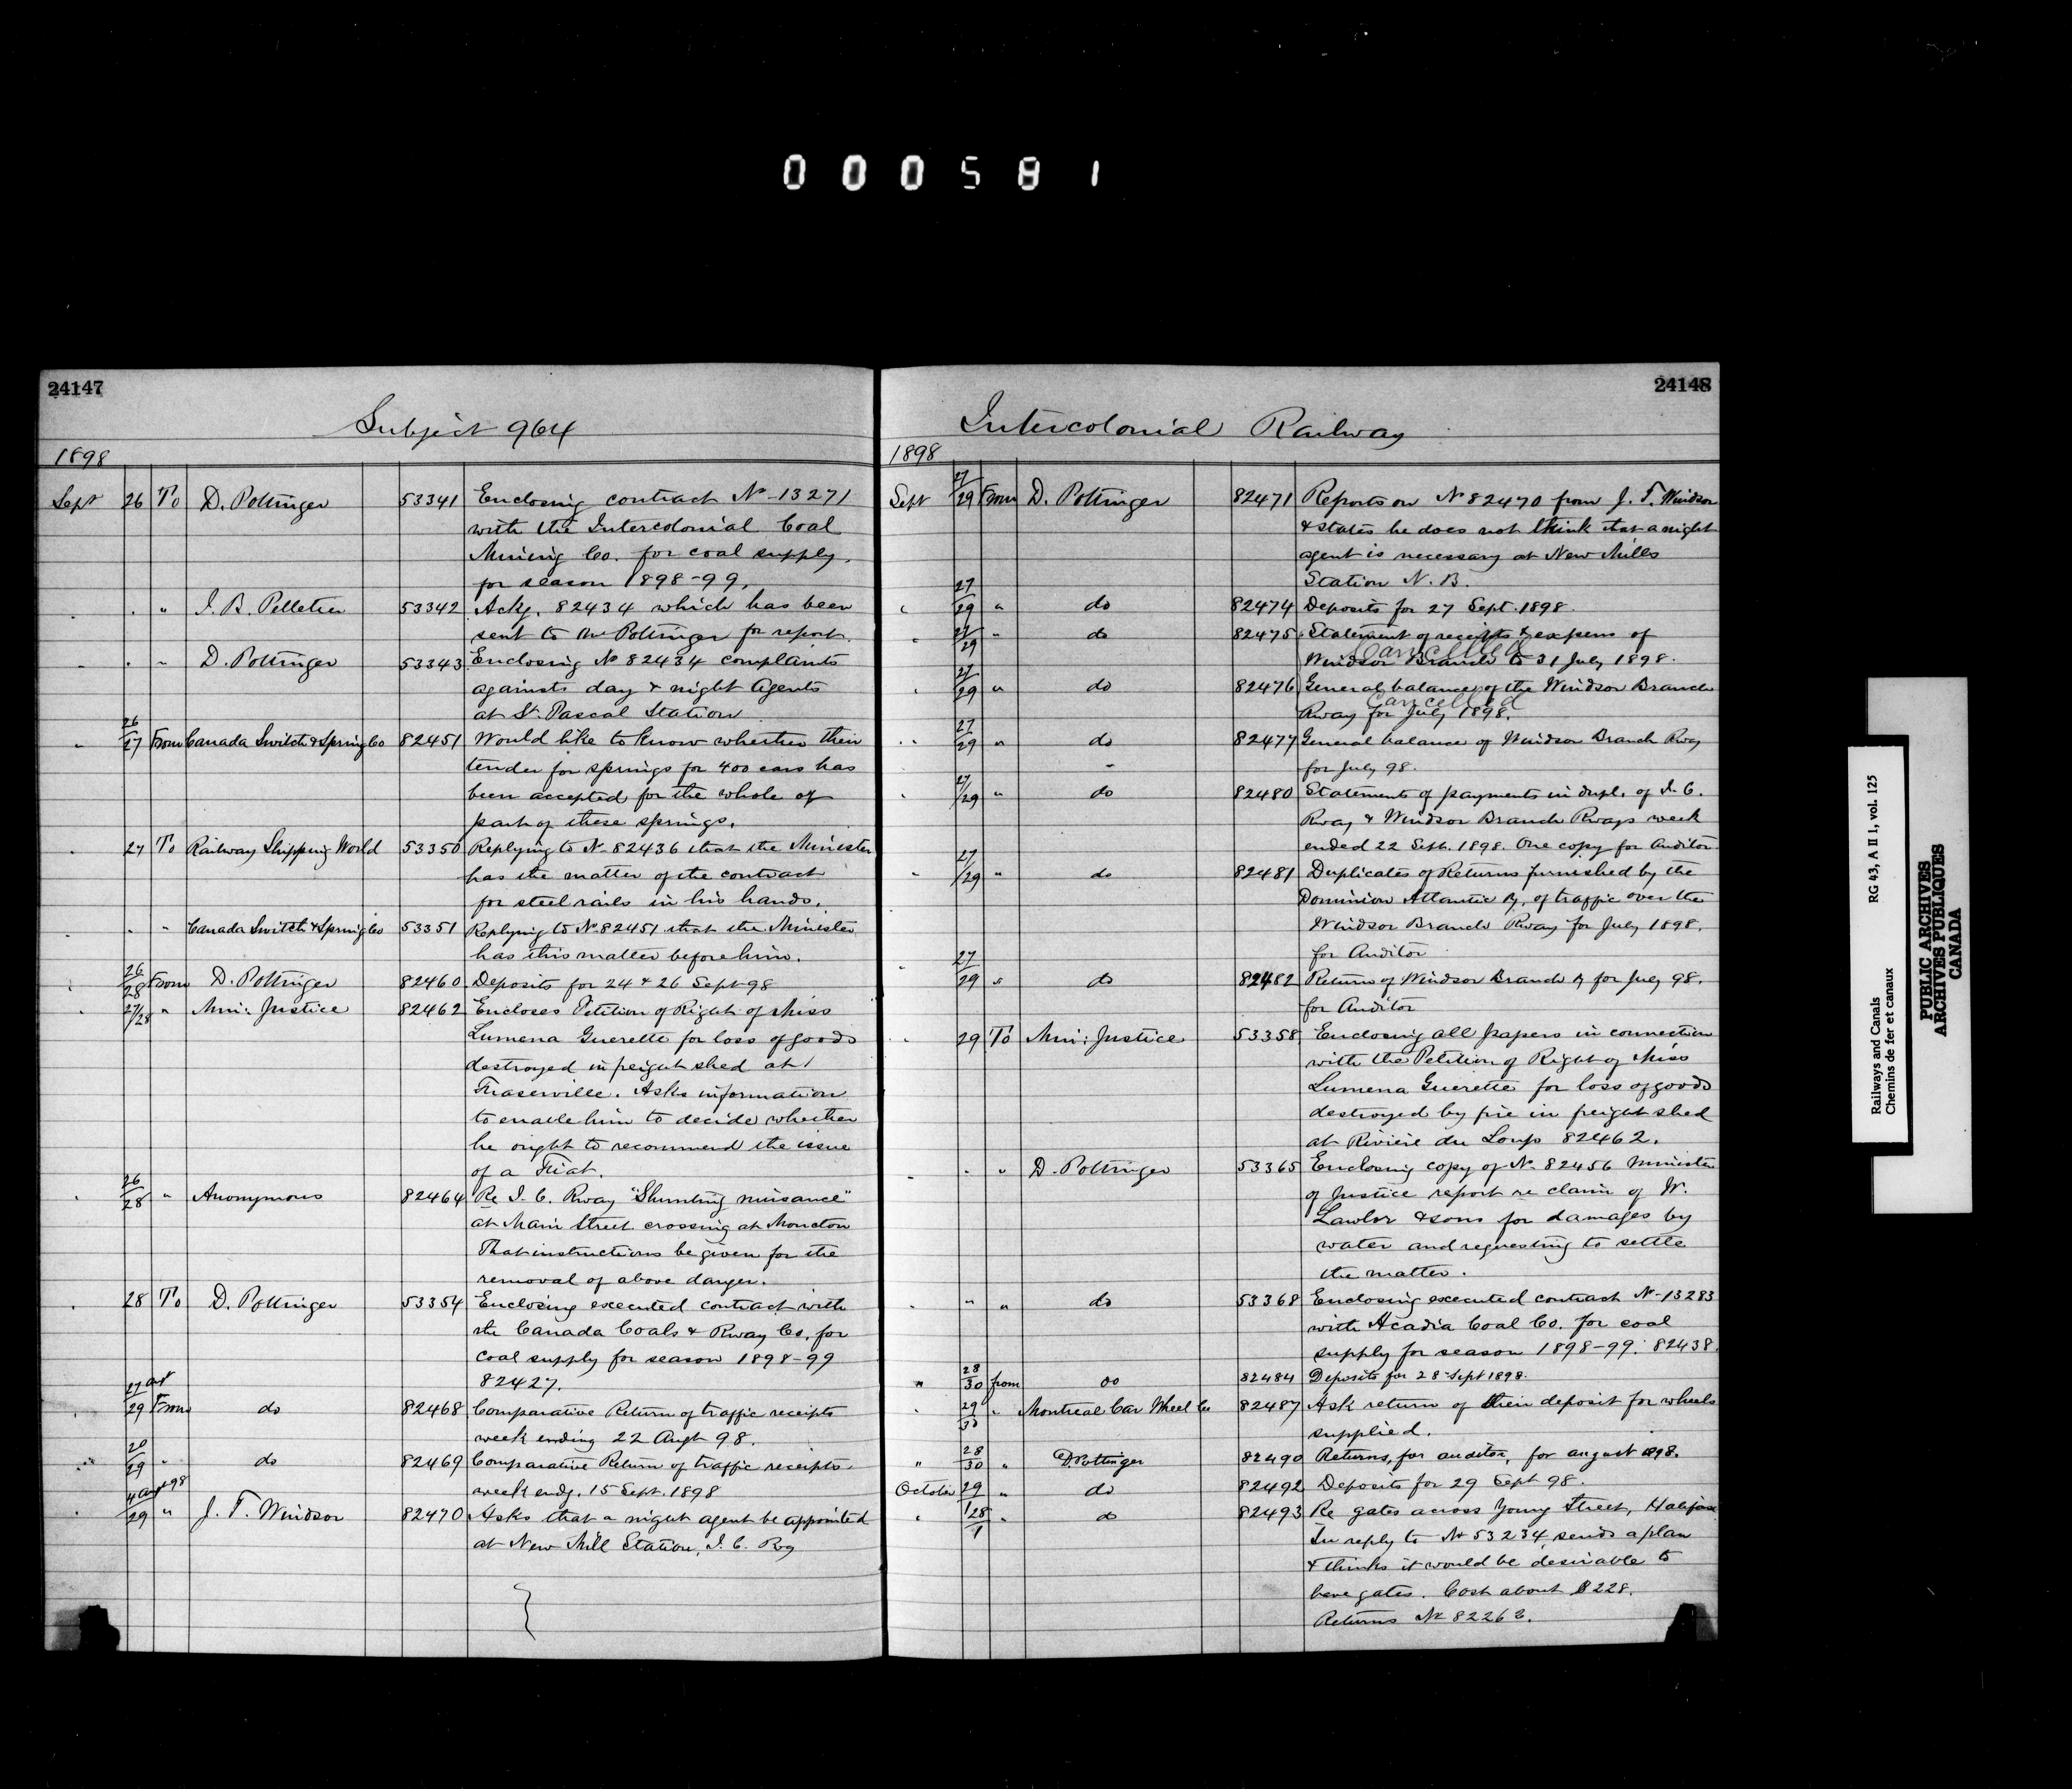 000581
24147
Subject 964
1898
Sept 26 To D. Pottinger 53341 Enclosing contract No 13271
with the Intercolonial Coal
Mining Co. for coal supply
for season 1898-99.
. . " J. B. Pelletier 53342 Ackg. 82434 which has been
sent to Mr Pottinger for report.
. . " D. Pottinger 53343 Enclosing No 82434 complaints
againsts day & night Agents
at St. Pascal Station
" 26/27 From Canada Switch & Spring Co 82451 Would like to know whether their
tender for springs for 400 cars has
been accepted for the whole of
part of these springs.
. 27 To Railway Shipping World 53350 Replying to No 82436 that the Minister
has the matter of the contract
for steel rails in his hands.
. . " Canada Switch & Spring Co 53351 Replying to No 82451 that the Minister
has this matter before him.
. 26/28 From D. Pottinger 82460 Deposits for 24 & 26 Sept 98
. 27/28 " Min: Justice 82462 Encloses Petition of Right of Miss
Lumena Guerette for loss of goods
destroyed in freight shed at
Fraserville. Asks information
to enable him to decide whether
he ought to recommend the issue
of a Fiat.
. 26/28 " Anonymous 82464 Re I. C. Rway "Shunting nuisance"
at Main Street crossing at Moncton
That instructions be given for the
removal of above danger.
. 28 To D. Pottinger 53354 Enclosing executed contract with
the Canada Coals & Rway Co. for
coal supply for season 1898-99
82427.
. 27/29 From do 82468 Comparative Return of traffic receipts
week ending 22 Augt 98.
. 20/29 " do 82469 Comparative Return of traffic receipts
week endg. 15 Sept. 1898
. 4 Augt 98/29 " J. T. Windsor 82470 Asks that a night agent be appointed
at New Mill Station, I. C. Rwy
24148
Intercolonial Railway
1898
Sept 27/29 From D. Pottinger 82471 Reports on No 82470 from J. T. Windsor
& states he does not think that a night
agent is necessary at New Mills
Station N. B.
" 27/29 " do 82474 Deposits for 27 Sept. 1898.
" 27/29 " do 82475 Statement of receipts & expens of
Cancelled
Windsor Branch to 31 July 1898.
. 27/29 " do 82476 General balance of the Windsor Branch
Cancelled
Rway for July 1898.
" 27/29 " do 82477 General balance of Windsor Branch Rwy
for July 98.
. 27/29 " do 82480 Statements of payments in dupl. of I. C.
Rway & Windsor Branch Rways week
ended 22 Sept. 1898. One copy for Auditor
" 27/29 " do 82481 Duplicates of Returns furnished by the
Dominion Atlantic Ry. of traffic over the
Windsor Branch Rway for July 1898.
for Auditor
" 27/29 " do 82482 Return of Windsor Branch Ry for July 98.
for Auditor
. 29 To Min: Justice 53358 Enclosing all papers in connection
with the Petition of Right of Miss
Lumena Guerette for loss of goods
destroyed by fire in freight shed
at Riviere du Loup 82462.
. . " D. Pottinger 53365 Enclosing copy of No. 82456 Minister
of Justice report re claim of W.
Lawlor & sons for damages by
water and requesting to settle
the matter.
. " " do 53368 Enclosing executed contract No 13283
with Acadia Coal Co. for coal
supply for season 1898-99. 82438.
" 28/30 from do 82484 Deposits for 28 Sept 1898.
. 29/30 " Montreal Car Wheel Co 82487 Ask return of their deposit for wheels
supplied.
" 28/30 " D. Pottinger 82490 Returns, for auditor, for august 1898.
October 29 " do 82492 Deposits for 29 Sept 98.
. 28/1 " do 82493 Re gates across Young Street, Halifax
In reply to No 53234, sends a plan
& thinks it would be desirable to
have gates. Cost about $228.
Returns No 82262.
Railways and Canals RG 43, A II 1, vol. 125
Chemins de fer et canaux
PUBLIC ARCHIVES
ARCHIVES PUBLIQUES
CANADA